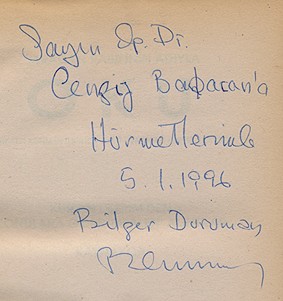 Sayın Op. Dr.
Cengiz Başaran'a
Hürmetlerimle
5.1.1996
Bilger Duruman